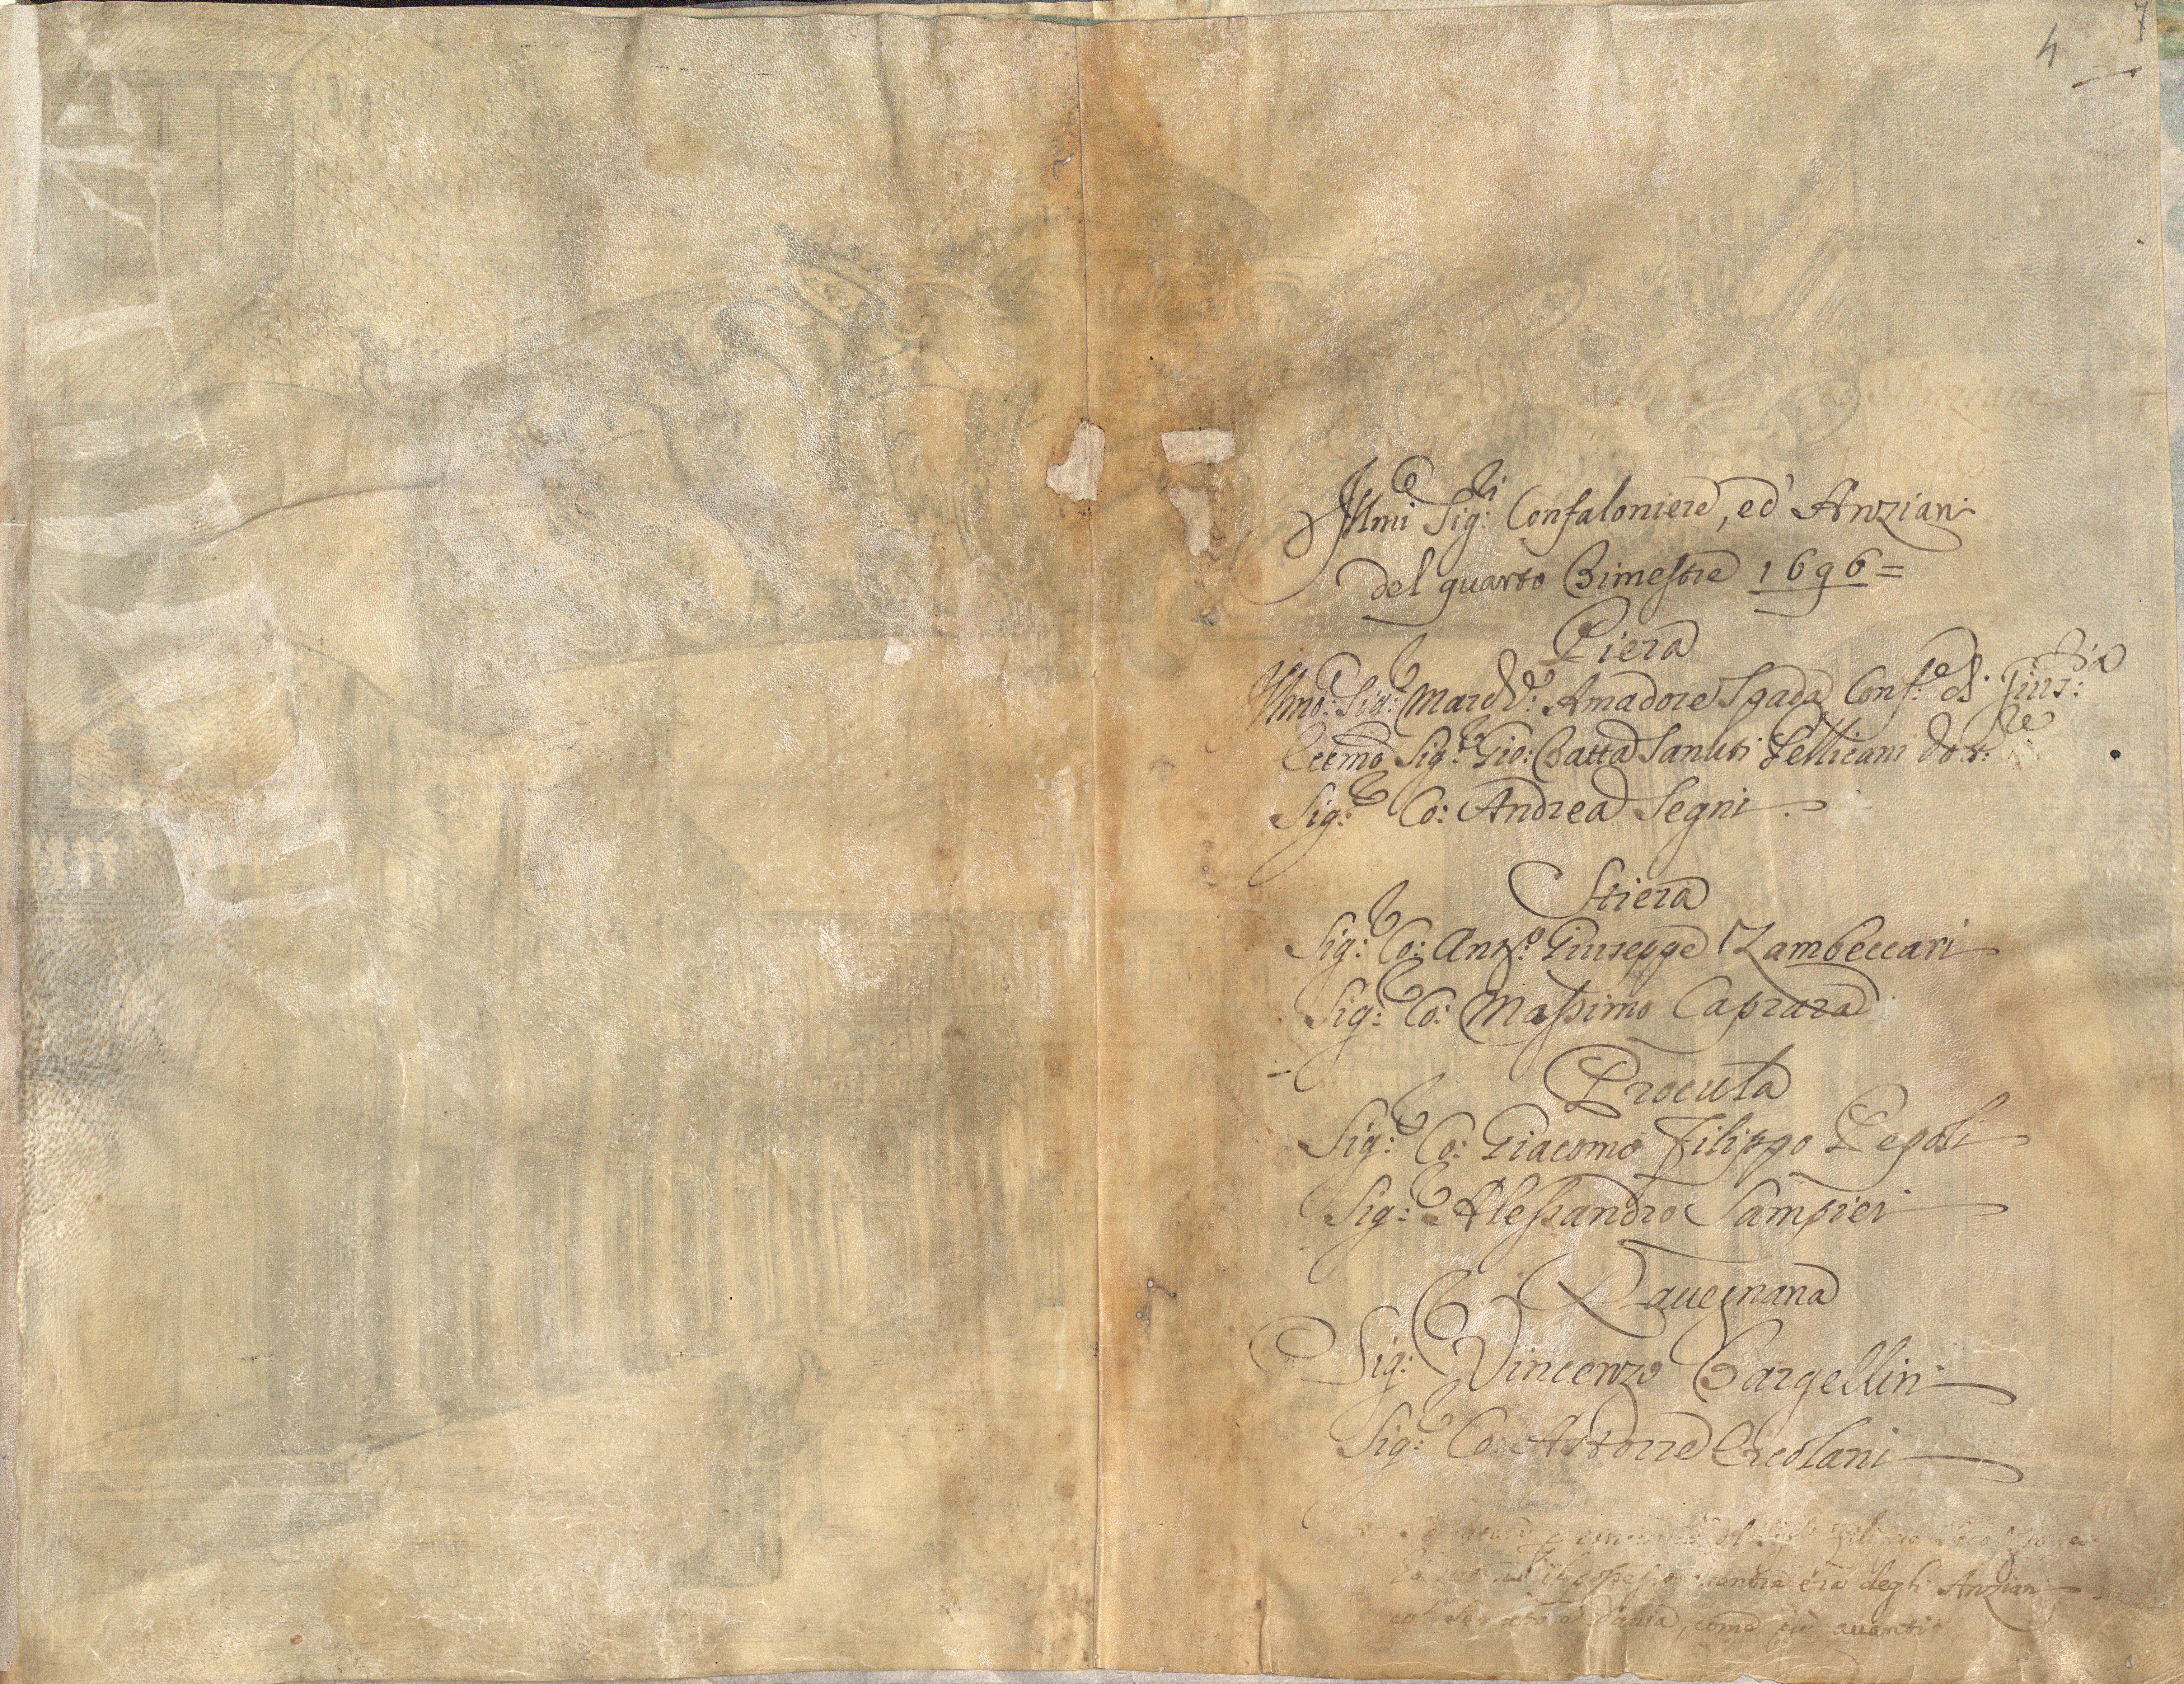 4
7
Anziani
Ill.mi Sig.ri Confaloniere, ed Anziani
del quarto Bimestre 1696=
Piera
Ill.mo: Sig.re March.e: Amadore Spada Conf.re di Giust:a
Ecc.mo Sig.re Gio: Batta Sanuti Pellicani Dot:re
Sig:re Co: Andrea Segni
Stiera
Sig:re Co: Ant.o: Giuseppe Zambeccari
Sig:re Co: Massimo Caprara
Procula
Sig:re Co: Giacomo Filippo Pepoli
Sig:re Alessandro Sampieri
Ravegnana
Sig:re Vincenzo Bargellini
Sig:re Co: Astorre Ercolani
il possesso mentre era degli Anziani
come più avanti